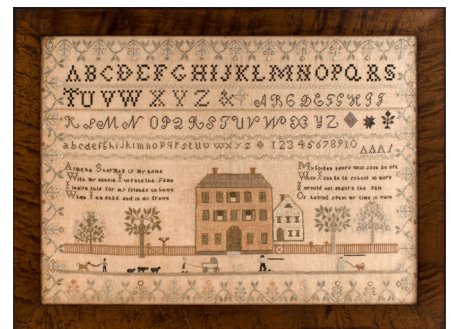 ABCDEFGHIJKLMNOPQRS
TUVWXYZ & ABCDEFGHIJ
KLMNOPQRSTUVWXYZ
abcdefghijklmnopqrstuvwxyz 1234567891O
Almena Sherman is my name
With my needle I wrote the same
I wrote this for my friends to have
When I am dead and in my grave
My school hours will soon be
When I can be to school no more
I would not endure the Pain
Of having spent my time in vain